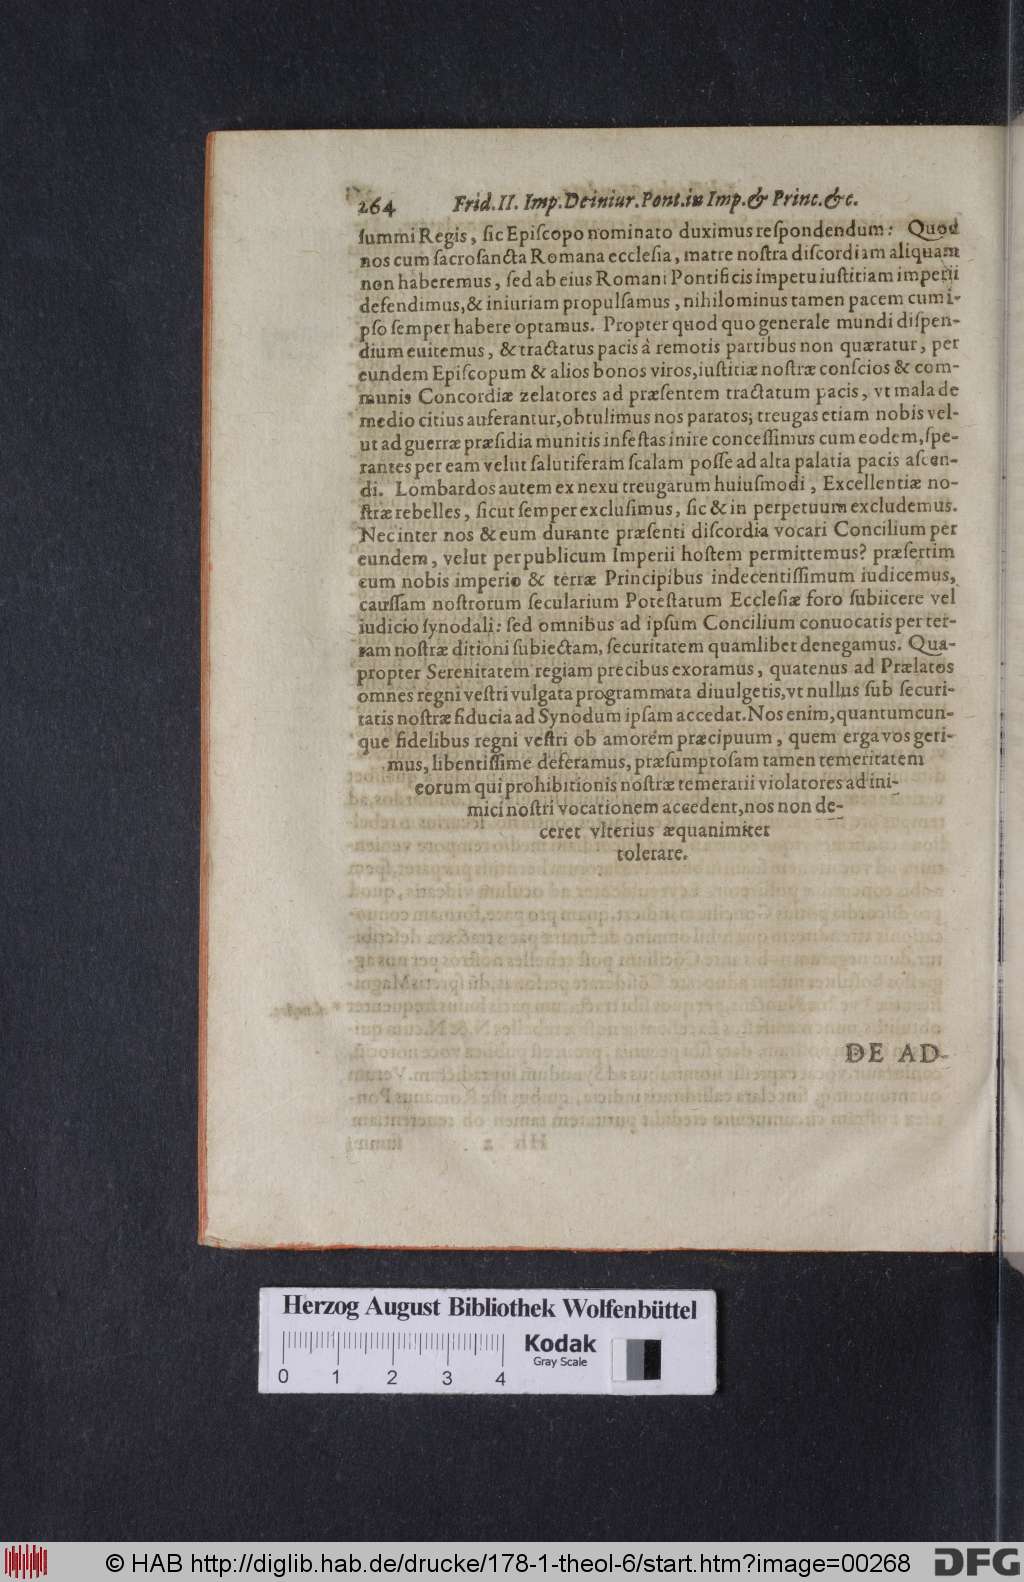 264 Frid.II. Imp.Deiniur.Pont.in Imp.& Princ.&c.
ſummi Regis, ſic Epiſcopo nominato duximus reſpondendum: Quod
nos cum ſacroſancta Romana eccleſia, matre noſtra diſcordiam aliquam
non haberemus, ſed ab eius Romani Pontificis impetu iuſtitiam imperii
defendimus,& iniuriam propulſamus, nihilominus tamen pacem cum i-
pſo ſemper habere optamus. Propter quod quo generale mundi diſpen-
dium euitemus, & tractatus pacis à remotis partibus non quæratur, per
eundem Epiſcopum & alios bonos viros,iuſtitiæ noſtræ conſcios & com-
munis Concordiæ zelatores ad præſentem tractatum pacis, vt mala de
medio citius auferantur,obtulimus nos paratos; treugas etiam nobis vel-
ut ad guerræ præſidia munitis infeſtas inire conceſſimus cum eodem,ſpe-
rantes per eam velut ſalutiferam ſcalam poſſe ad alta palatia pacis aſcen-
di. Lombardos autem ex nexu treugarum huiuſmodi, Excellentiæ no-
ſtræ rebelles, ſicut ſemper excluſimus, ſic & in perpetuum excludemus.
Nec inter nos & eum durante præſenti diſcordia vocari Concilium per
eundem, velut per publicum Imperii hoſtem permittemus? præſertim
cum nobis imperio & terræ Principibus indecentiſſimum iudicemus,
cauſſam noſtrorum ſecularium Poteſtatum Eccleſiæ foro ſubiicere vel
iudicio ſynodali: ſed omnibus ad ipſum Concilium conuocatis per ter-
ram noſtræ ditioni ſubiectam, ſecuritatem quamlibet denegamus. Qua-
propter Serenitatem regiam precibus exoramus, quatenus ad Prælatos
omnes regni veſtri vulgata programmata diuulgetis,vt nullus ſub ſecuri-
tatis noſtræ fiducia ad Synodum ipſam accedat. Nos enim,quantumcun-
que fidelibus regni veſtri ob amorem præcipuum, quem erga vos geri-
mus, libentiſſime deferamus, præſumptoſam tamen temeritatem
eorum qui prohibitionis noſtræ temerarii violatores ad ini-
mici noſtri vocationem accedent, nos non de-
ceret vlterius æquanimiter
tolerare.
DE AD-
Herzog August Bibliothek Wolfenbüttel
Kodak
Gray Scale
0 1 2 3 4
© HAB http://diglib.hab.de/drucke/178-1-theol-6/start.htm?image=00268
DFG